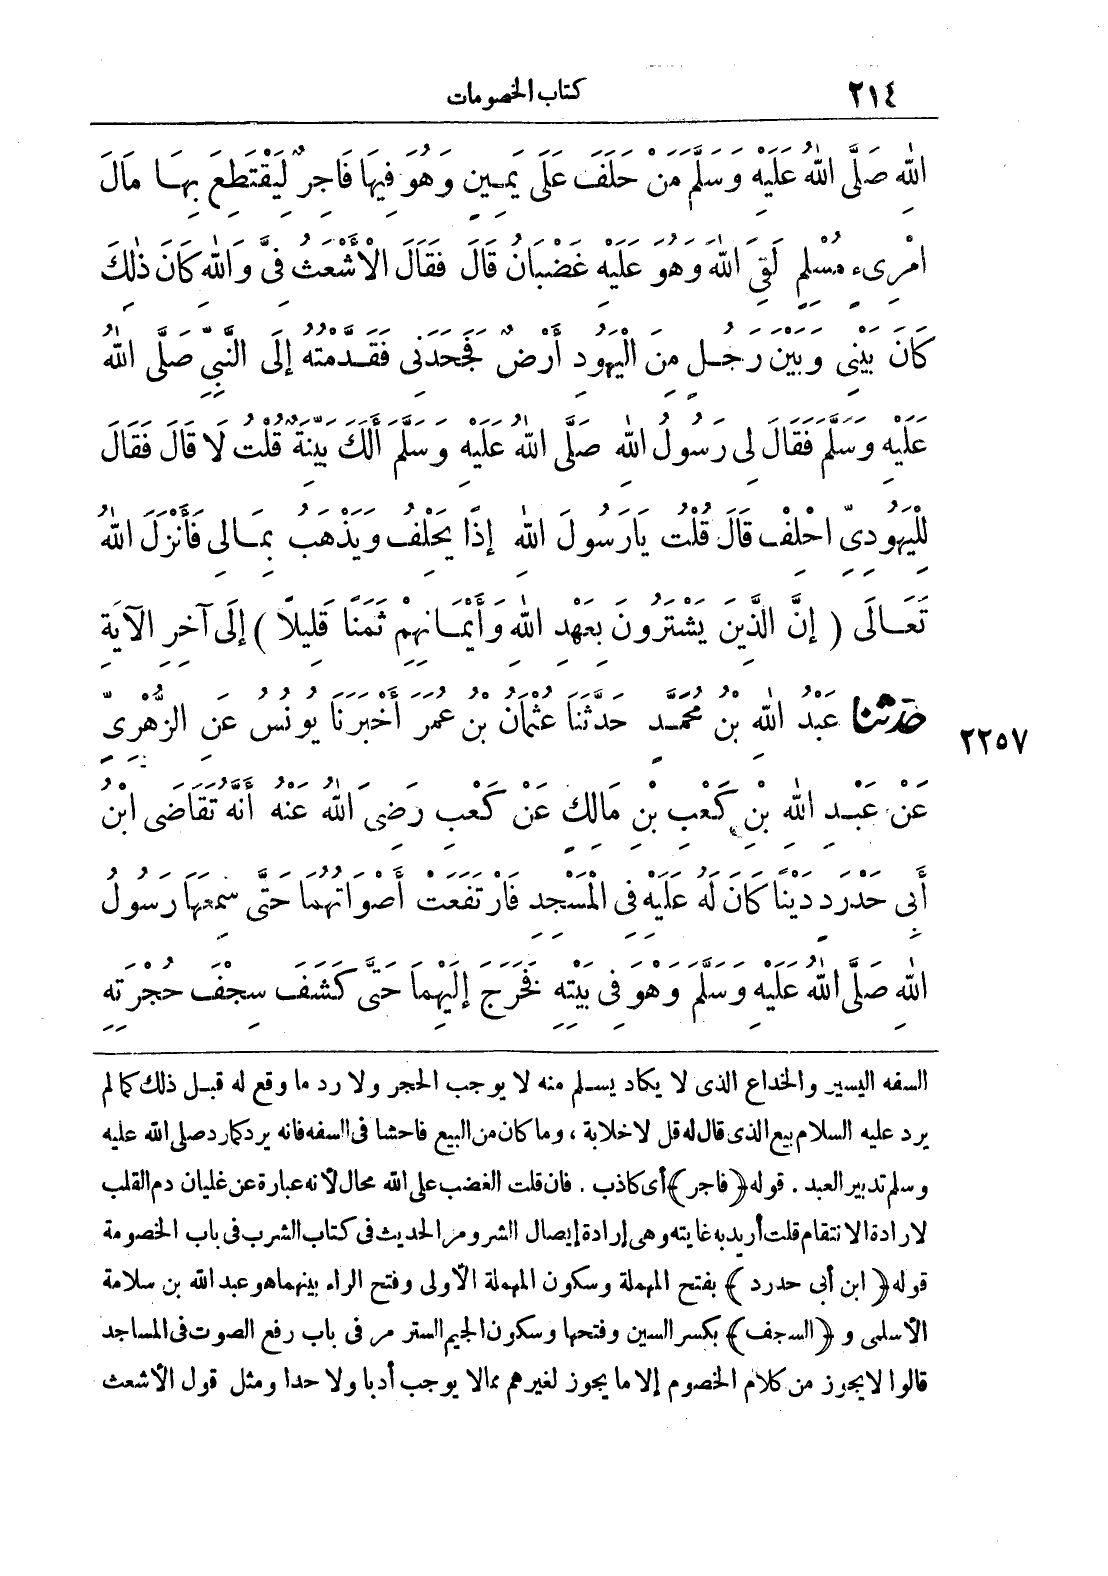 ٢١٤ كتاب الخصومات
اللَّهِ صَلَّى اللَّهُ عَلَيْهِ وَسَلَّمَ مَنْ حَلَفَ عَلَى يَمِينٍ وَهُوَ فِيهَا فَاجِرٌ لِيَقْتَطِعَ بِهَا مَالَ
امْرِىءٍ مُسْلِمٍ لَقِىَ اللَّهَ وَهُوَ عَلَيْهِ غَضْبَانُ قَالَ فَقَالَ الْأَشْعَثُ فِىَّ وَاللَّهِ كَانَ ذٰلِكَ
كَانَ بَيْنِى وَبَيْنَ رَجُلٍ مِنَ الْيَهُودِ أَرْضٌ فَجَحَدَنِى فَقَدَّمْتُهُ إِلَى النَّبِىِّ صَلَّى اللَّهُ
عَلَيْهِ وَسَلَّمَ فَقَالَ لِى رَسُولُ اللَّهِ صَلَّى اللَّهُ عَلَيْهِ وَسَلَّمَ أَلَكَ بَيِّنَةٌ قُلْتُ لَا قَالَ فَقَالَ
لِلْيَهُودِىِّ احْلِفْ قَالَ قُلْتُ يَارَسُولَ اللَّهِ إِذًا يَحْلِفُ وَيَذْهَبُ بِمَالِى فَأَنْزَلَ اللَّهُ
تَعَالَى ( إِنَّ الَّذِينَ يَشْتَرُونَ بِعَهْدِ اللَّهِ وَأَيْمَانِهِمْ ثَمَنًا قَلِيلًا ) إِلَى آخِرِ الْآيَةِ
٢٢٥٧ حَدَّثَنَا عَبْدُ اللَّهِ بْنُ مُحَمَّدٍ حَدَّثَنَا عُثْمَانُ بْنُ عُمَرَ أَخْبَرَنَا يُونُسُ عَنِ الزُّهْرِىِّ
عَنْ عَبْدِ اللَّهِ بْنِ كَعْبِ بْنِ مَالِكٍ عَنْ كَعْبٍ رَضِىَ اللَّهُ عَنْهُ أَنَّهُ تَقَاضَى ابْنَ
أَبِى حَدْرَدٍ دَيْنًا كَانَ لَهُ عَلَيْهِ فِى الْمَسْجِدِ فَارْتَفَعَتْ أَصْوَاتُهُمَا حَتَّى سَمِعَهَا رَسُولُ
اللَّهِ صَلَّى اللَّهُ عَلَيْهِ وَسَلَّمَ وَهُوَ فِى بَيْتِهِ فَخَرَجَ إِلَيْهِمَا حَتَّى كَشَفَ سِجْفَ حُجْرَتِهِ
السفه اليسير والخداع الذى لا يكاد يسلم منه لا يوجب الحجر ولا رد ما وقع له قبل ذلك كما لم
يرد عليه السلام بيع الذى قال له قل لا خلابة ، وما كان من البيع فاحشا فى السفه فانه يرد كمارد صلى الله عليه
وسلم تدبير العبد . قوله ﴿فاجر﴾ أى كاذب . فان قلت الغضب على الله محال لأنه عبارة عن غليان دم القلب
لارادة الانتقام قلت أريد به غايته وهى إرادة إيصال الشر ومر الحديث فى كتاب الشرب فى باب الخصومة
قوله ﴿ ابن أبى حدرد ﴾ بفتح المهملة وسكون المهملة الأولى وفتح الراء بينهما هو عبد الله بن سلامة
الأسلمى و ﴿السجف﴾ بكسر السين وفتحها وسكون الجيم الستر مر فى باب رفع الصوت فى المساجد
قالوا لا يجوز من كلام الخصوم إلا ما يجوز لغيرهم مما لا يوجب أدبا ولا حدا ومثل قول الأشعث